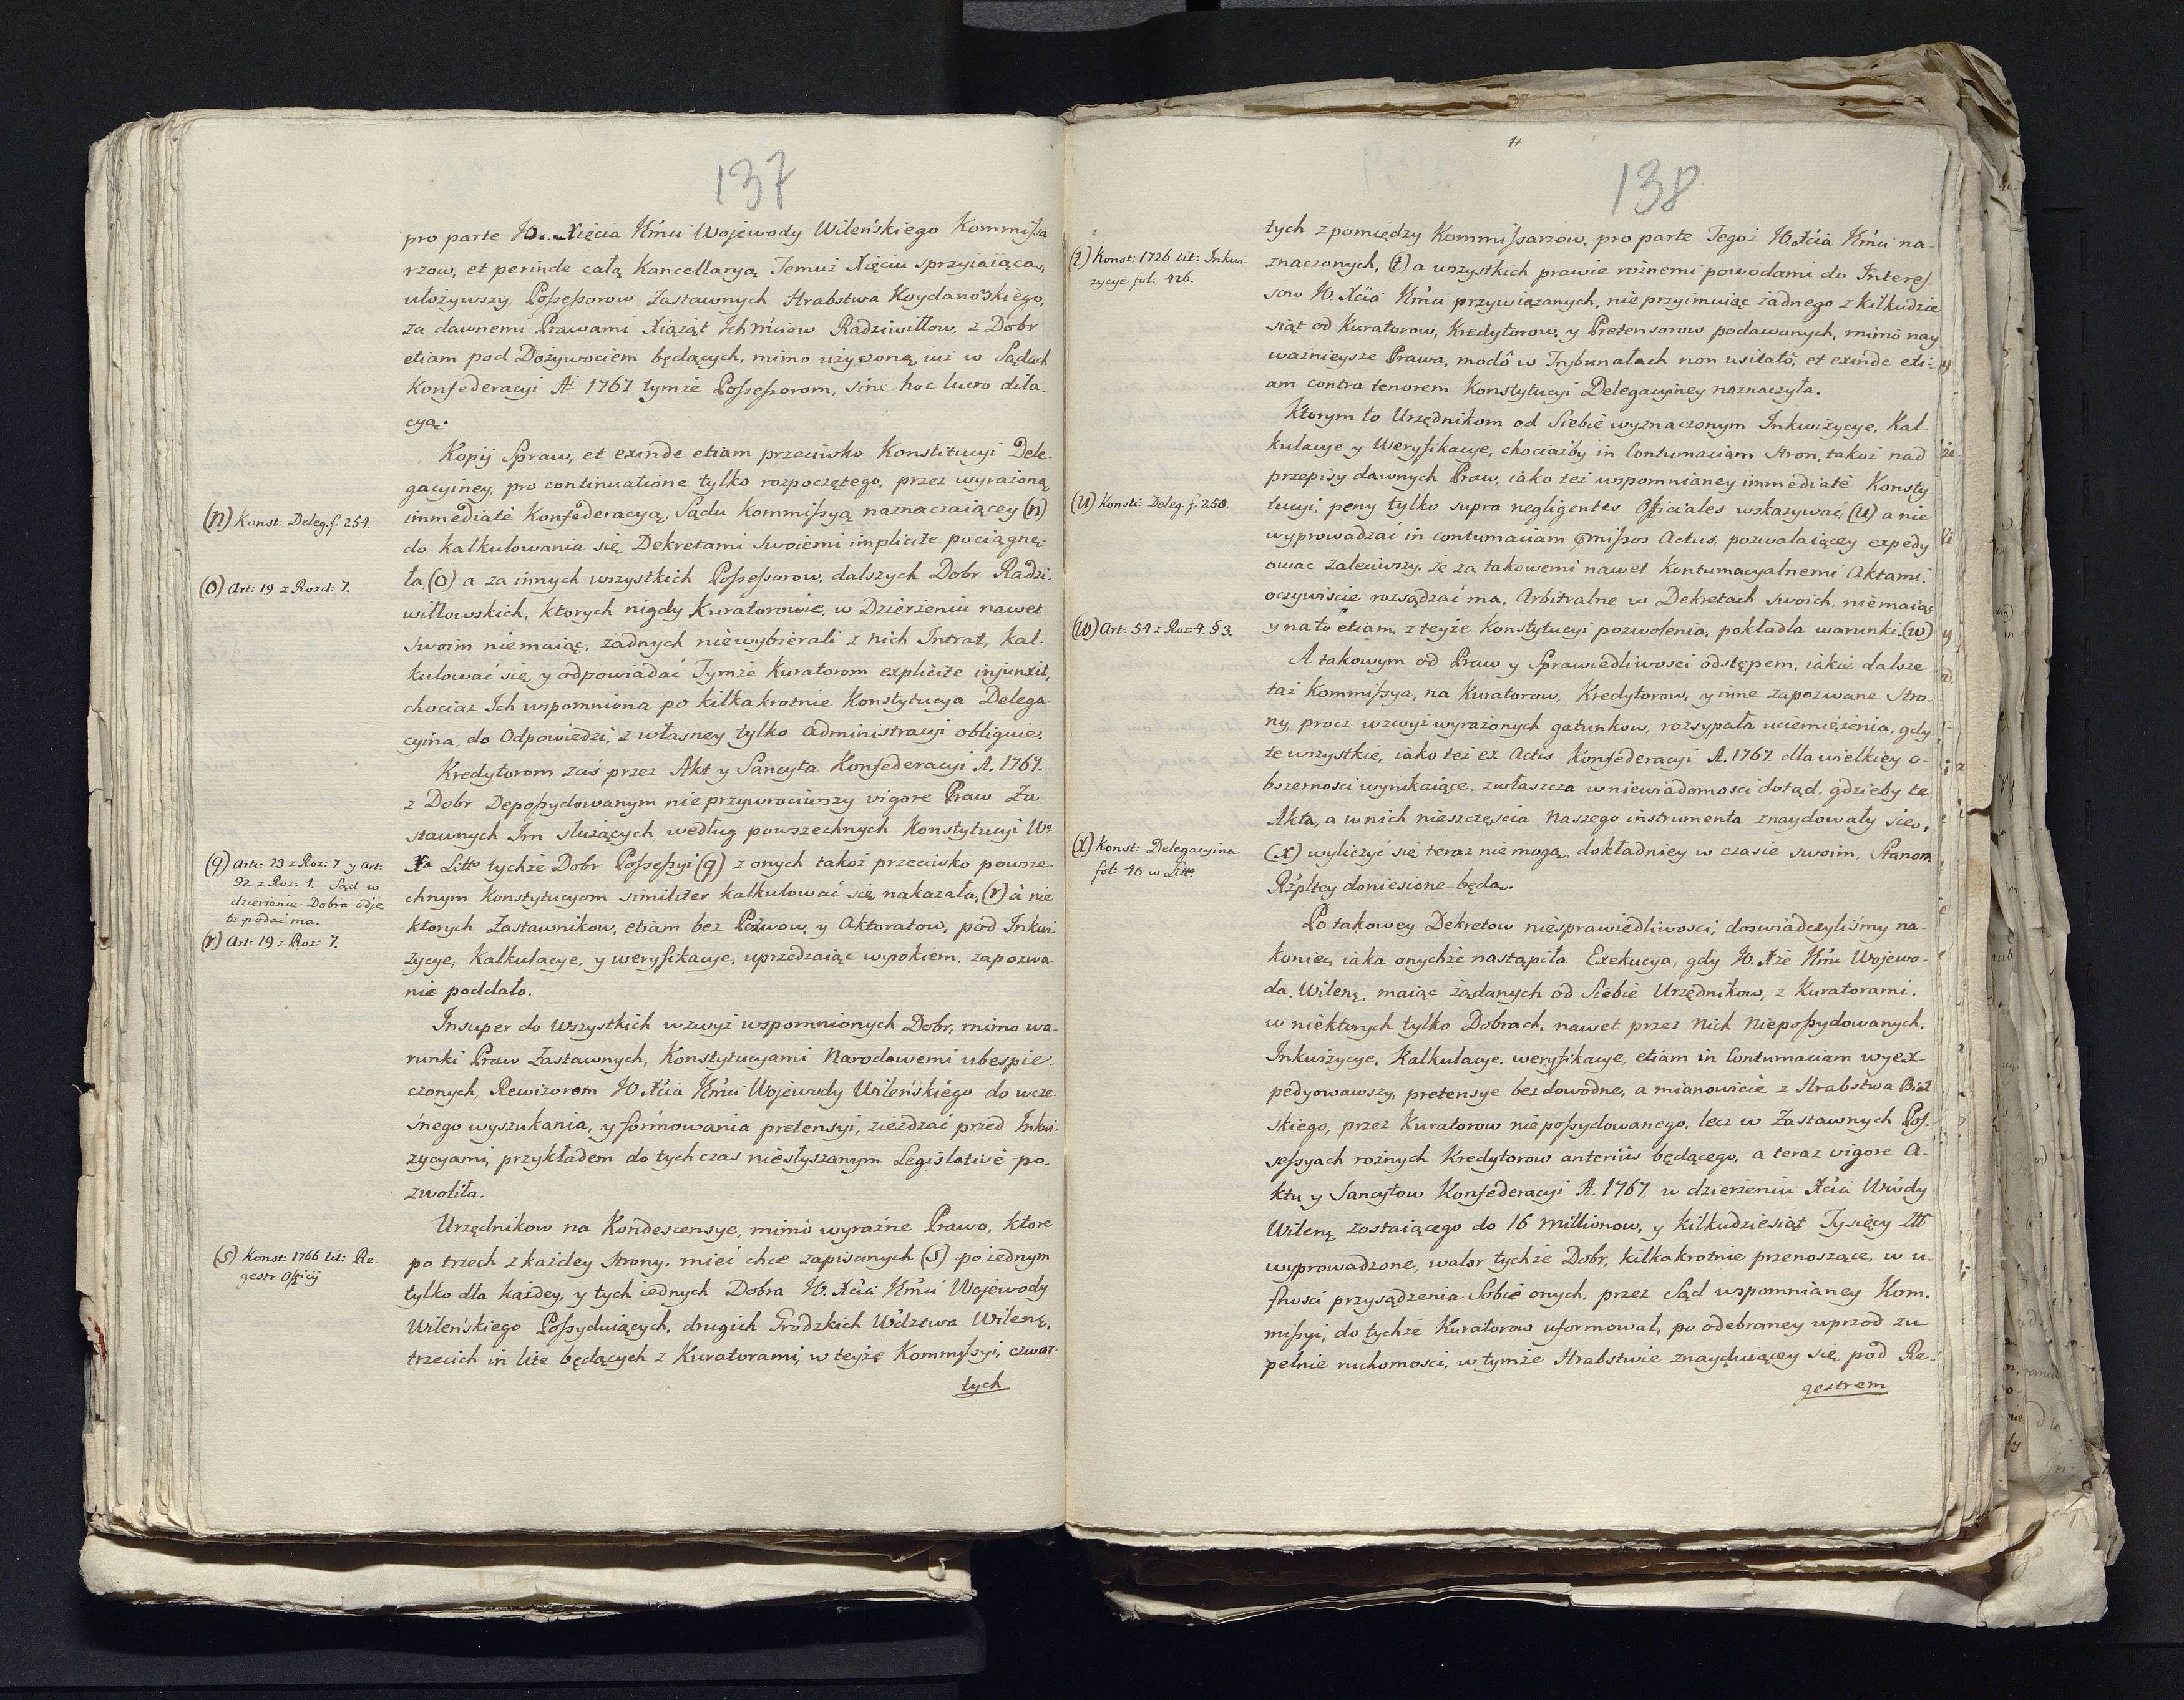 137
pro parte JO. Xięcia Jm̃ci Wojewody Wileńskiego Kommissa-
rzow, et perinde całą Kancellaryą Temuż Xięciu sprzyiaiącą,
ułożywszy, Possessorow Zastawnych Hrabstwa Koydanowskiego,
za dawnemi Prawami Xiążąt Ichm̃ciow Radziwiłłow, z Dobr
etiam pod Dożywociem będących, mimo użyczoną iuż w Sądach
Konfederacyi Ai 1767 tymże Possessorom, sine hoc lucro dila-
cyą.
Kopij Spraw, et exinde etiam przeciwko Konstitucyi Dele-
gacyiney, pro continuatione tylko rozpoczętego, przez wyrażoną
immediatè Konfederacyą, Sądu Kommissyą naznaczaiącey (n)
(n) Konst: Deleg. f. 254.
do kalkulowania się Dekretami swoiemi implicite pociągnę-
ła, (o) a za innych wszystkich Possessorow, dalszych Dobr Radzi-
(o) Art: 19 z Rozd: 7.
wiłłowskich, ktorych nigdy Kuratorowie, w Dzierżeniu nawet
swoim niemaiąc, żadnych niewybierali z nich Intrat, kal-
kulować się y odpowiadać Tymże Kuratorom explicite injunxit,
chociaż Ich wspomniona po kilkakrotnie Konstytucya Delega-
cyina, do Odpowiedzi, z własney tylko administracyi obliguie.
Kredytorom zaś przez Akt y Sancyta Konfederacyi A. 1767.
z Dobr Depossydowanym nie przywrociwszy vigore Praw Za
stawnych Im służących według powszechnych Konstytucyi Wo
Xa Litto tychże Dobr Possessyi (q) z onych takoż przeciwko powsze-
(q) Art: 23 z Roz: 7 y Art:
92 z Roz: 4. Sąd w
dzierżenie Dobra odję
te podać ma.
chnym Konstytucyom similiter kalkulować się nakazała, (r) a nie
(r) Art: 19 z Roz: 7.
ktorych Zastawnikow, etiam bez Pozwow, y Aktoratow, pod Inkwi-
zycye, Kalkulacye, y weryfikacye, uprzedzaiąc wyrokiem, zapozwa-
nie poddało.
Insuper do wszystkich wzwyż wspomnionych Dobr, mimo wa-
runki Praw Zastawnych, Konstytucyami Narodowemi ubespie-
czonych, Rewizorom JO. Xcia Jm̃ci Wojewody Wileńskiego do wcze-
śnego wyszukania, y formowania pretensyi, zieżdzać przed Inkwi-
zycyami, przykładem do tych czas niesłyszanym Legislativè po-
zwoliła.
Urzędnikow na Kondescensye, mimo wyraźne Prawo, ktore
po trzech z każdey strony, mieć chce zapisanych (s) po iednym
(s) Konst: 1766 tit: Re-
gestr Officij
tylko dla każdey, y tych iednych Dobra JO. Xcia Jm̃ci Wojewody
Wileńskiego Possyduiących, drugich Grodzkich Wdztwa Wileńɇ,
trzecich in lite będących z Kuratorami, w teyże Kommissyi, czwar-
tych
138
tych z pomiędzy Kommissarzow, pro parte Tegoż JO. Xcia Jm̃ci na-
znaczonych, (t) a wszystkich prawie rożnemi powodami do Interes-
(t) Konst: 1726 tit: Inkwi-
zycye fol: 426.
sow JO Xcia Jm̃ci przywiązanych, nie przyimuiąc żadnego z kilkudzie
siąt od Kuratorow, Kredytorow, y Pretensorow podawanych, mimo nay
ważnieysze Prawa, modo w Trybunałach non usitato, et exinde eti-
am contra tenorem Konstytucyi Delegacyiney naznaczyła.
Ktorym to Urzędnikom od Siebie wyznaczonym Inkwizycye, Kal-
kulacye y Weryfikacye, chociażby in Contumaciam stron, takoż nad
przepisy dawnych Praw, iako też wspomnianey immediatè Konsty-
tucyi, peny tylko supra negligentes Officiales wskazywać, (u) a nie
(u) Konst: Deleg. f. 258.
wyprowadzać in contumaciam omissos Actus, pozwalaiącey expedy
ować zaleciwszy, że za takowemi nawet Kontumacyalnemi Aktami.
oczywiście rozsądzać ma, Arbitralne w Dekretach swoich, niemaiąc
y na to etiam, z teyże Konstytucyi pozwolenia, pokładła warunki. (w)
(w) Art: 54 z Roz: 4. § 3.
A takowym od Praw y Sprawiedliwości odstępem, iakie dalsze
taż Kommissya, na Kuratorow, Kredytorow, y inne zapozwane Stro-
ny, procz wzwyż wyrażonych gatunkow, rozsypała uciemiężenia, gdy
te wszystkie, iako też ex Actis Konfederacyi A. 1767. dla wielkiey o-
bszerności wynikaiące, zwłaszcza w niewiadomości dotąd, gdzieby te
Akta, a w nich nieszczęścia Naszego instrumenta znaydowały się,
(x) wyliczyć się teraz nie mogą, dokładniey w czasie swoim, Stanom
(x) Konst: Delegacyina
fol: 40 w Litte.
Rzpltey doniesione będą.
Po takowey Dekretow niesprawiedliwości, doswiadczyliśmy na-
koniec, iaka onychże nastąpiła Exekucya, gdy JO. Xże Jm̃ć Wojewo-
da Wileńɇ, maiąc żądanych od Siebie Urzędnikow, z Kuratorami.
w niektorych tylko Dobrach, nawet przez Nich Niepossydowanych,
Inkwizycye, Kalkulacye, weryfikacye, etiam in Contumaciam wyex-
pedyowawszy, pretensye bezdowodne, a mianowicie z Hrabstwa Bial
skiego, przez Kuratorow nie possydowanego, lecz w Zastawnych Pos-
sessyach rożnych Kredytorow anterius będącego, a teraz vigore A-
ktu y Sancytow Konfederacyi A. 1767. w dzierżeniu Xcia Wwdy
Wileńɇ zostaiącego do 16 Millionow, y kilkudziesiąt Tysięcy Złł
wyprowadzone, walor tychże Dobr, kilkakrotnie przenoszące, w u-
fności przysądzenia Sobie onych, przez Sąd wspomnianey Kom-
missyi, do tychże Kuratorow uformował, po odebraney uprzod zu-
pełnie ruchomości, w tymże Hrabstwie znayduiącey się pod Re-
gestrem